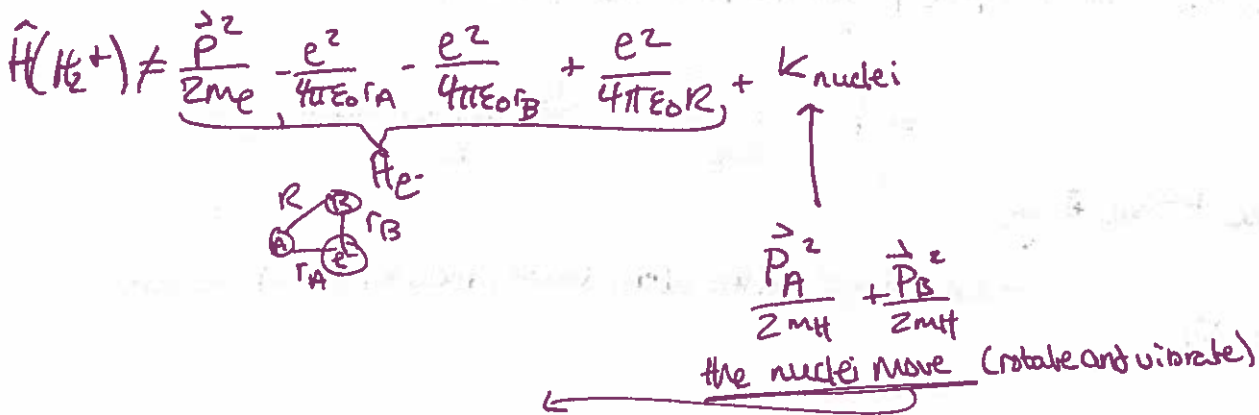 Ĥ(H₂⁺) ≠ p⃗²/2mₑ - e²/4πε₀r_A - e²/4πε₀r_B + e²/4πε₀R + K nuclei
Ĥe-
R B r_B
A r_A e⁻
P⃗_A²/2mH + P⃗_B²/2mH
the nuclei move (rotate and vibrate)